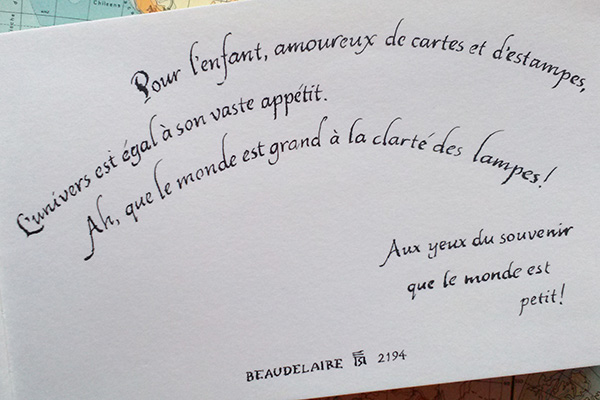 Pour l'enfant, amoureux de cartes et d'estampes,
L'univers est égal à son vaste appétit.
Ah, que le monde est grand à la clarté des lampes!
Aux yeux du souvenir
que le monde est
petit!
BEAUDELAIRE 2194